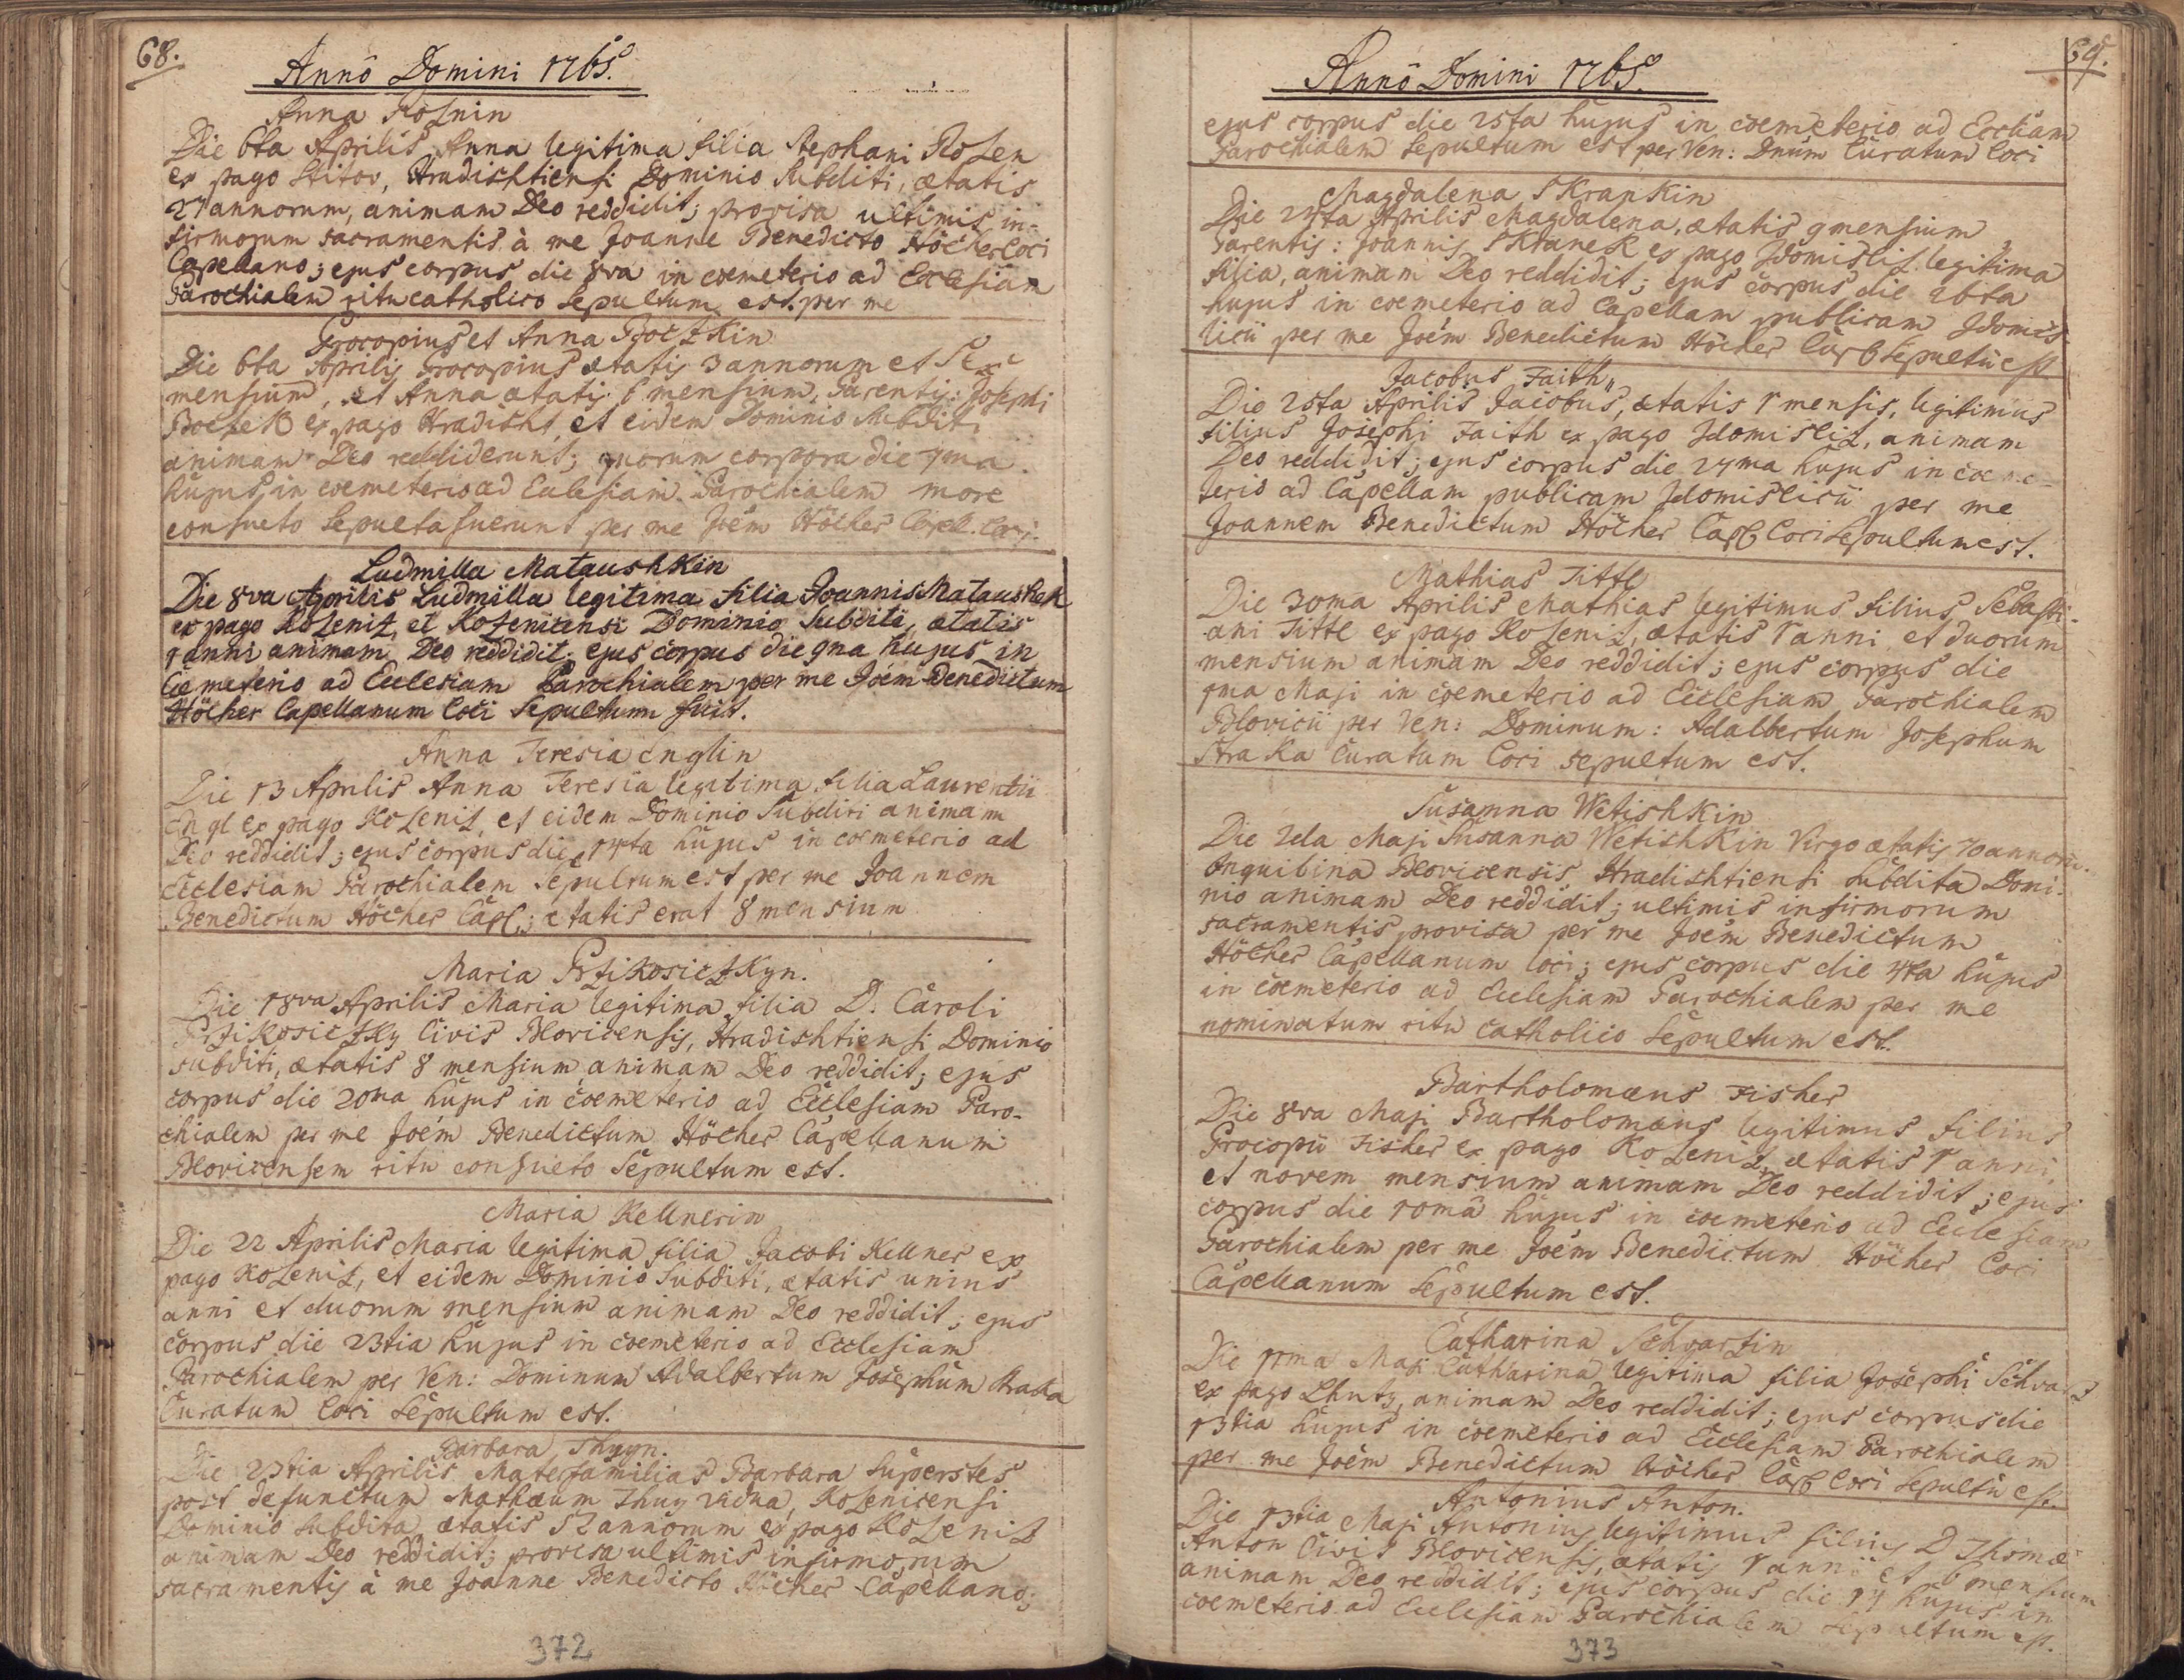 68.
Annô Domini 1765.
Anna Roznin
Die 6ta Aprilis Anna legitima filia Stephani Rosen
ex pago Stitov, Hradishtiensi Dominio Subditi, ætatis
27 annorum, animam Deo reddidit; provisa ultimis in-
firmorum sacramentis à me Joanne Benedicto Höcher loci
Capellano; ejus corpus die 8va in coemeterio ad Ecclesiam
Parochialem ritu catholico Sepultum est per me
Procopius et Anna Boczkin
Die 6ta Aprilis Procopius ætatis 3 annorum et Sex
mensium, et Anna ætatis 6 mensium, Parentis: Josephi
Boczek ex pago Hradisht, et eidem Dominio Subditi
animam Deo reddiderunt; quorum corpora die 7ma
hujus in coemeterio ad Eclesiam Parochialem more
consueto Sepulta fuerunt per me Joém Höcher Capell. Loci.
Ludmilla Mataushkin
Die 8va Aprilis Ludmilla legitima filia Joannis Mataushek
ex pago Kozeniz, et Kozenicensi Dominio Subditi, ætatis
1 anni animam Deo reddidit. ejus corpus die 9na hujus in
Coemeterio ad Ecclesiam Parochialem per me Joém Benedictum
Höcher Capellanum loci Sepultum fuit.
Anna Teresia Englin
Die 13 Aprilis Anna Teresia legitima filia Laurentii
Engl ex pago Kozeniz, et eidem Dominio Subditi animam
Deo reddidit; ejus corpus die 14ta hujus in coemeterio ad
Ecclesiam Parochialem Sepultum est per me Joannem
Benedictum Höcher Cap:; ætatis erat 8 mensium
Maria Przikosiczkyn.
Die 18va Aprilis Maria legitima filia D. Caroli
Przikosiczky Civis Blovicensis, Hradishtiensi Dominio
subditi, ætatis 8 mensium animam Deo reddidit; ejus
corpus die 20ma hujus in coemeterio ad Ecclesiam Paro-
chialem per me Joém Benedictum Höcher Capellanum
Blovicensem ritu consueto Sepultum est.
Maria Kellnerin
Die 22 Aprilis Maria legitima filia Jacobi Kellner ex
pago Kozeniz, et eidem Dominio Subditi, ætatis unius
anni et duorum mensium animam Deo reddidit; ejus
corpus die 23tia hujus in coemeterio ad Ecclesiam
Parochialem per Ven: Dominum Adalbertum Josephum Straka
Curatum loci Sepultum est.
Barbara Thuyn.
Die 23tia Aprilis Materfamilias Barbara Superstes
post defunctum Mathæum Thuy vidua, Kozenicensi
Dominio Subdita ætatis 52 annorum ex pago Kozeniz
animam Deo reddidit; provisa ultimis infirmorum
sacramentis à me Joanne Benedicto Höcher Capellano;
372
69.
Annô Domini 1765.
ejus corpus die 25ta hujus in coemeterio ad Eccliam
Parochialem Sepultum est per Ven: Dnum Curatum loci
Magdalena Skrankin
Die 24ta Aprilis Magdalena, ætatis 9 mensium
Parentis: Joannis Skranek ex pago Zdomisliz legitima
filia, animam Deo reddidit; ejus corpus die 26ta
hujus in coemeterio ad Capellam publicam Zdomis-
licii per me Joém Benedictum Höcher Cap: Sepultū est
Jacobus Faith
Die 25ta Aprilis Jacobus, ætatis 1 mensis, legitimus
filius Josephi Faith ex pago Zdomisliz, animam
Deo reddidit; ejus corpus die 27ma hujus in coeme-
terio ad Capellam publicam Zdomislicii per me
Joannem Benedictum Höcher Cap: loci Sepultum est.
Mathias Tittl
Die 30ma Aprilis Mathias legitimus filius Sebasti-
ani Tittl ex pago Kozeniz, ætatis 1 anni et duorum
mensium animam Deo reddidit; ejus corpus die
1ma Maji in coemeterio ad Ecclesiam Parochialem
Blovicii per Ven: Dominum: Adalbertum Josephum
Straka Curatum loci sepultum est.
Susanna Wetishkin
Die 2da Maji Susanna Wetishkin Virgo ætatis 70 annorū.
Inquilina Blovicensis Hradishtiensi Subdita Domi-
nio animam Deo reddidit; ultimis infirmorum
sacramentis provisa per me Joém Benedictum
Höcher Capellanum loci; ejus corpus die 4ta hujus
in coemeterio ad Ecclesiam Parochialem per me
nominatum ritu catholico Sepultum est.
Bartholomæus Fisher
Die 8va Maji Bartholomæus legitimus filius
Procopii Fisher ex pago Kozeniz, ætatis 1 anni,
et novem mensium animam Deo reddidit; ejus
corpus die 10mâ hujus in coemeterio ad Ecclesiam
Parochialem per me Joém Benedictum Höcher loci
Capellanum Sepultum est.
Catharina Schvarzin
Die 11ma Maji Catharina legitima filia Josephi Schvarz
ex pago Lhuty, animam Deo reddidit; ejus corpus die
13tia hujus in coemeterio ad Ecclesiam Parochialem
per me Joém Benedictum Höcher Cap: loci Sepultū est
Antonius Anton.
Die 13tia Maji Antonius legitimus filius D Thomæ
Anton Civis Blovicensis, ætatis 1 anni et 6 mensium
animam Deo reddidit; ejus corpus die 14 hujus in
coemeterio ad Ecclesiam Parochialem Sepultum est.
373